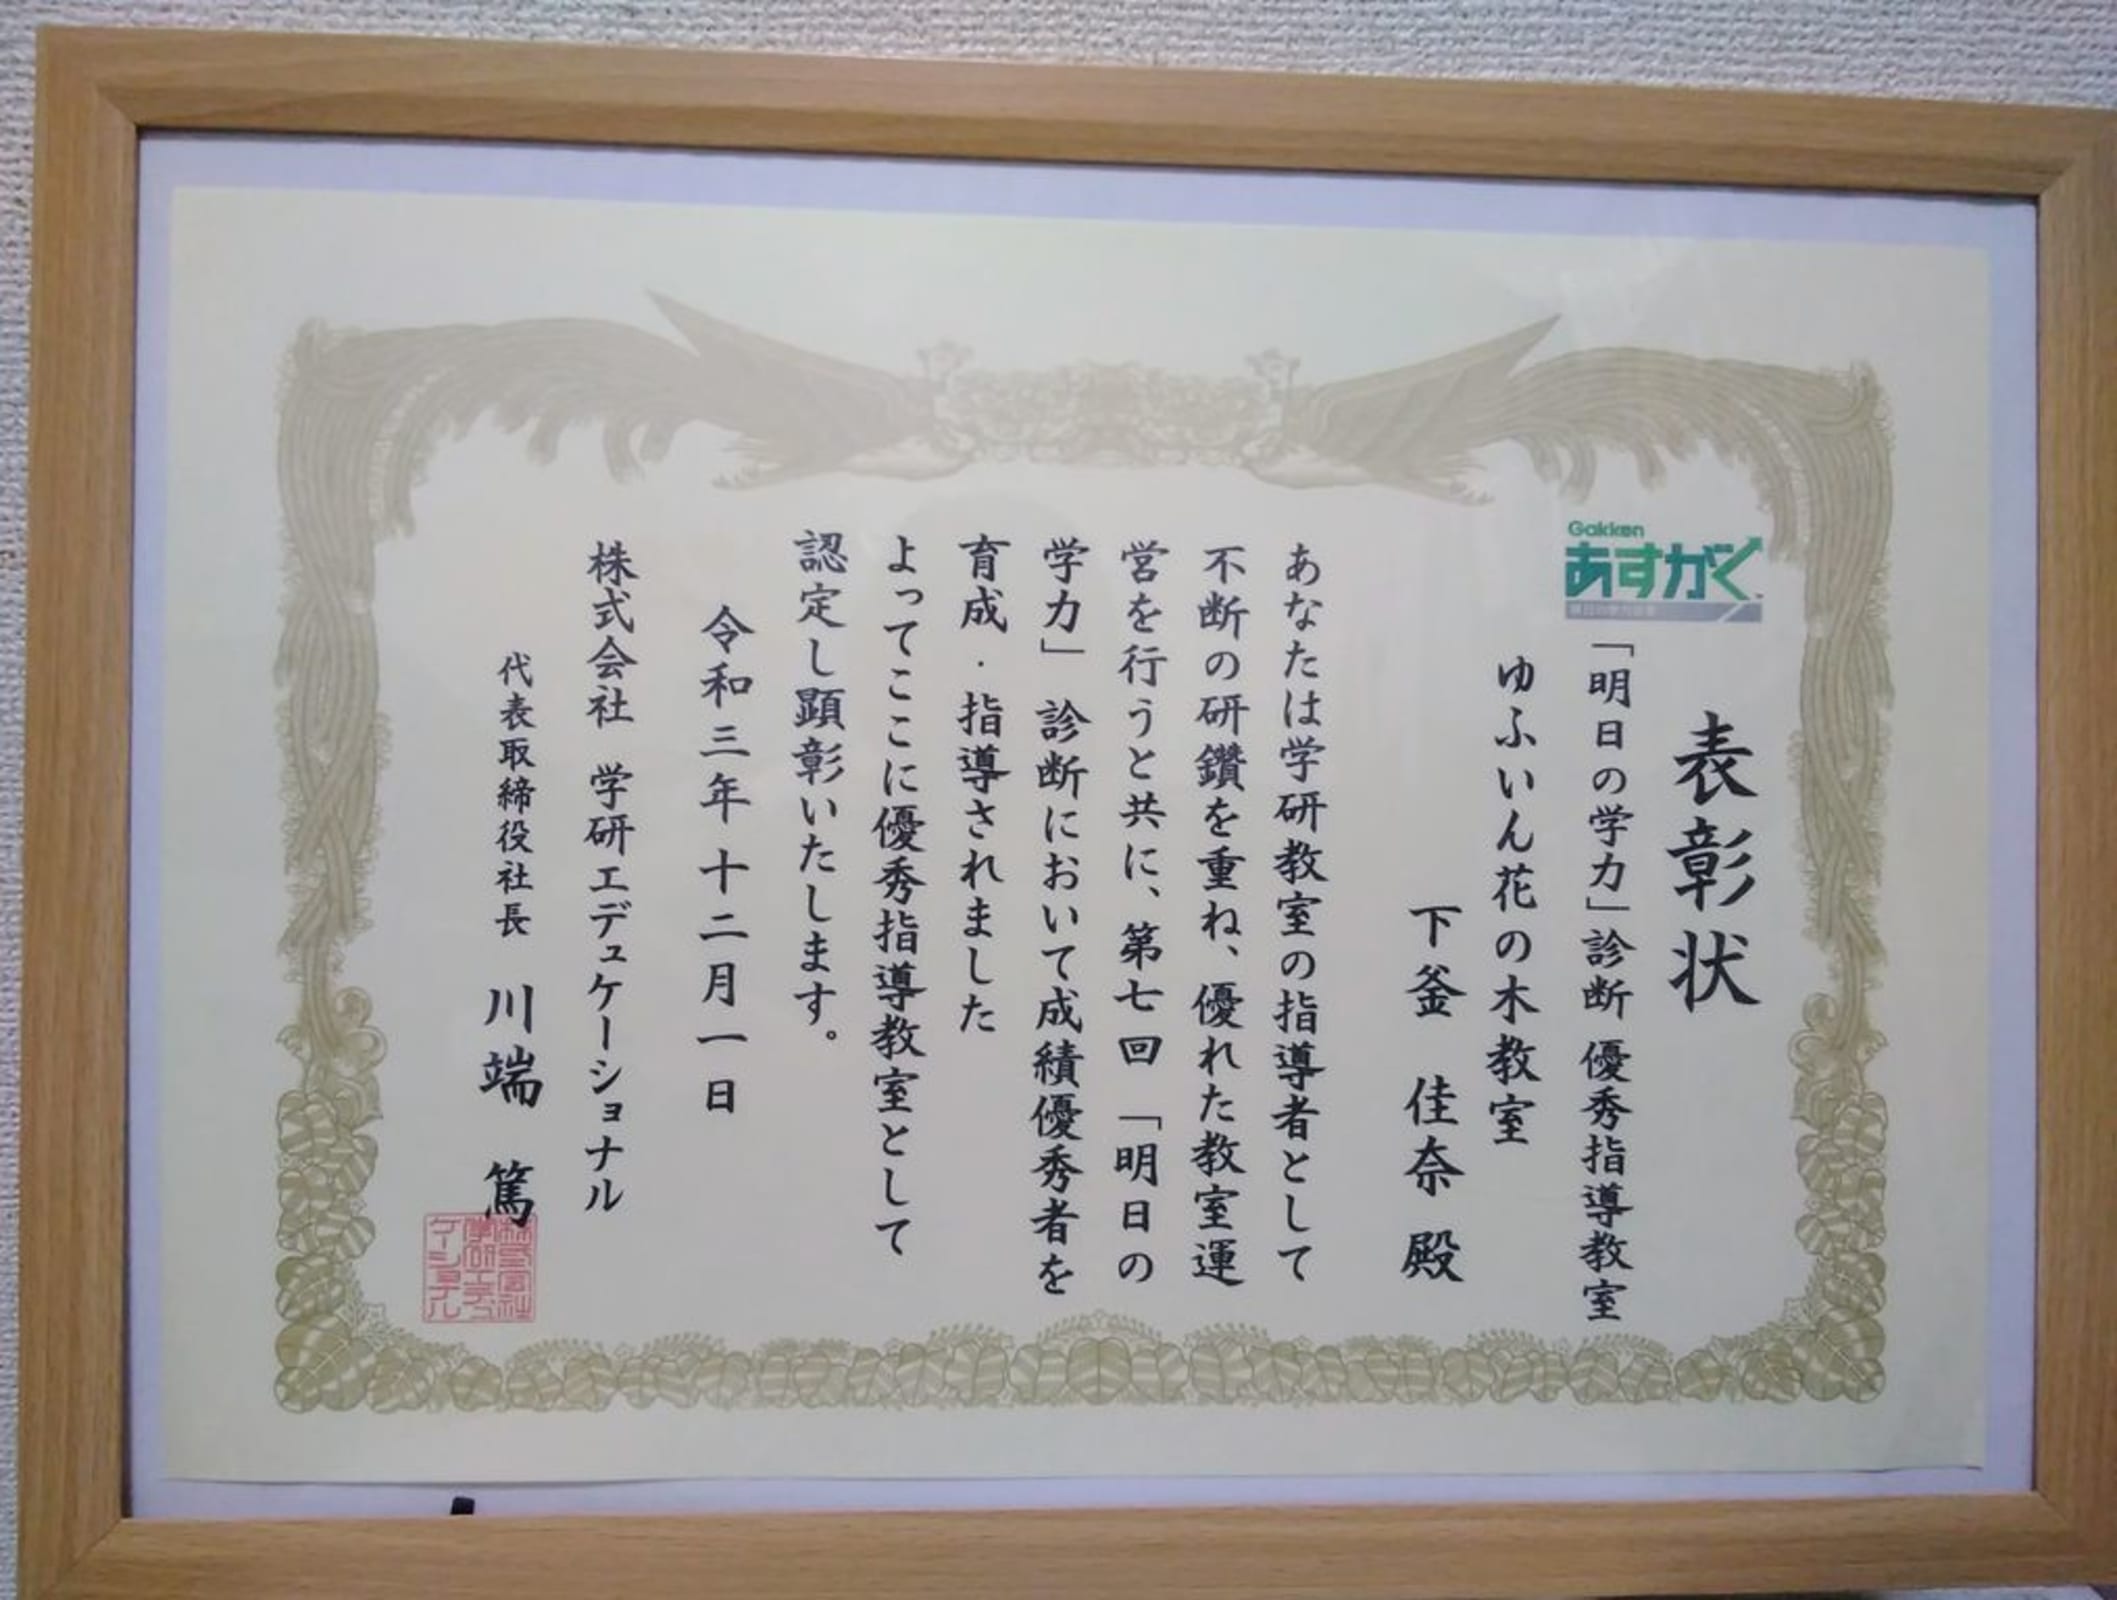 表彰状
Gakken
あすがく
「明日の学力」診断 優秀指導教室
ゆふいん花の木教室
下釜 佳奈 殿
あなたは学研教室の指導者として
不断の研鑽を重ね、優れた教室運
営を行うと共に、第七回 「明日の
学力」 診断において成績優秀者を
育成・指導されました
よってここに優秀指導教室として
認定し顕彰いたします。
令和三年十二月一日
株式会社 学研エデュケーショナル
代表取締役社長 川端 篤
株式会社
学研エデュ
ケーショナル